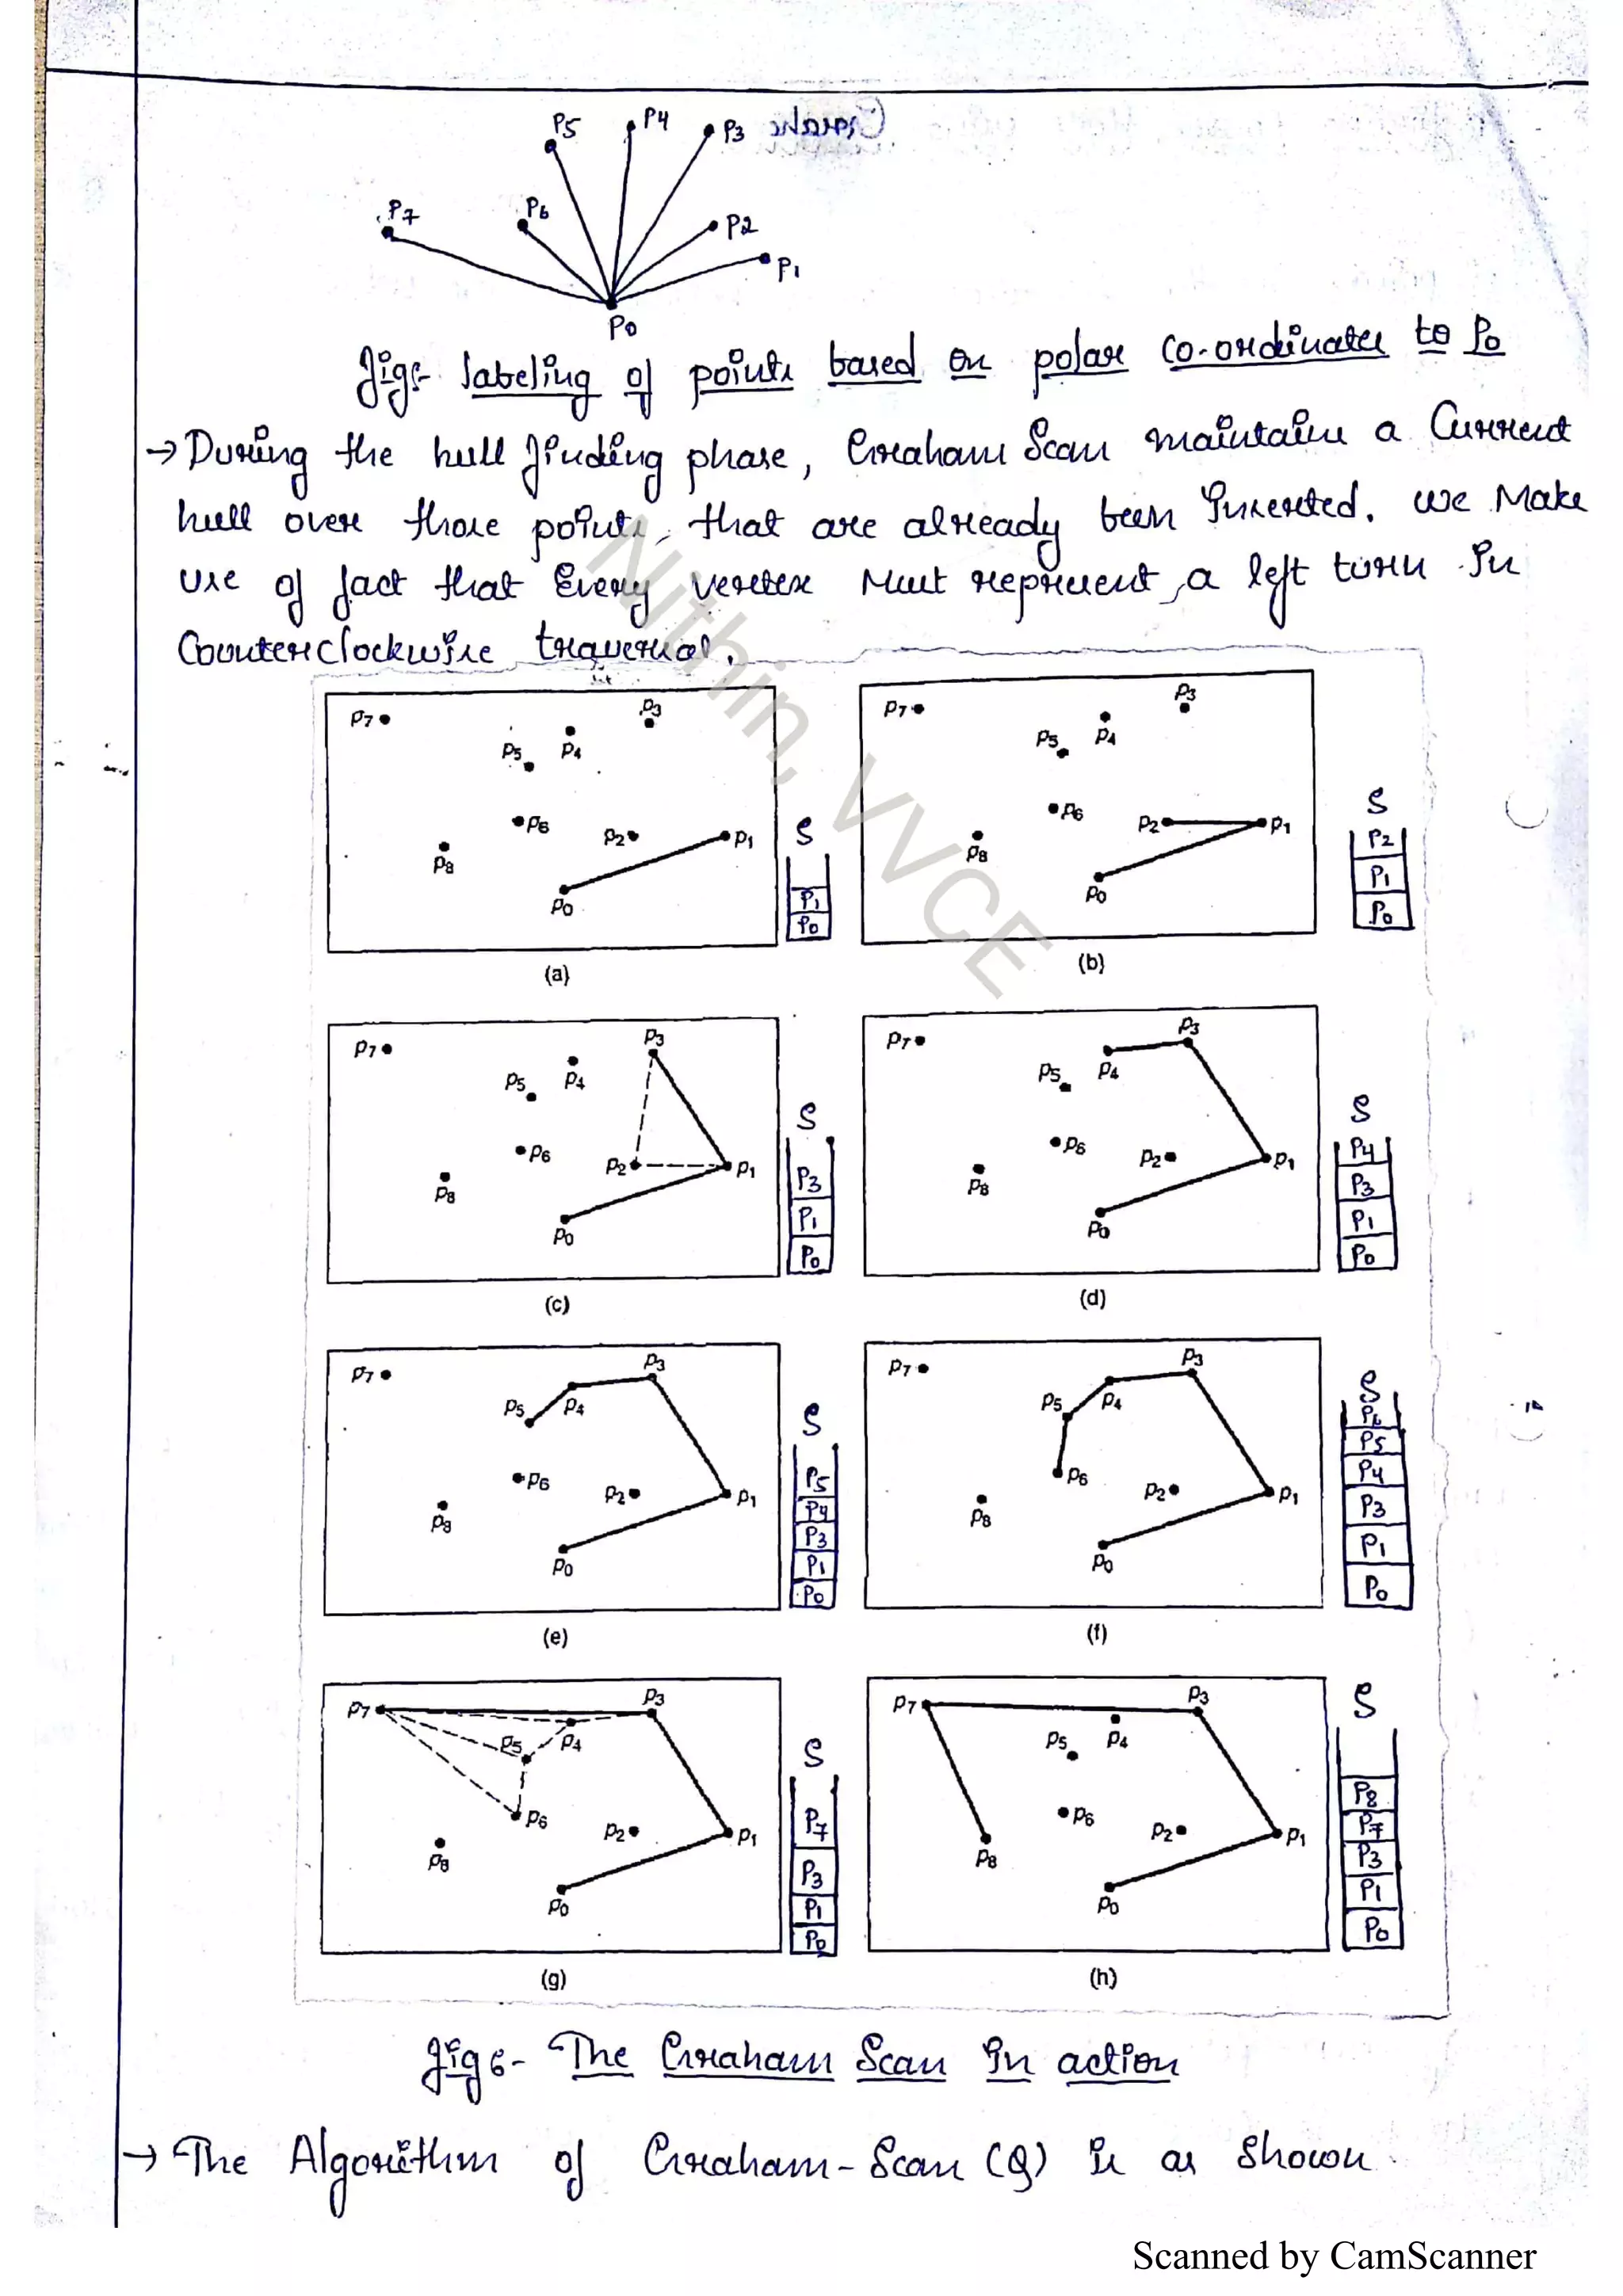 P5 P4 P3 Graham
P7 P6 P2
P1
P0
fig:- labeling of points based on polar co-ordinates to P0
→ During the hull finding phase, Graham Scan maintains a Current
hull over those points, that are already been Inserted. we Make
use of fact that Every vertex Must represent a left turn In
Counterclockwise traversal.
P7 P3 P5 P4 P6 P2 P1 P8 P0
S
P1
P0
(a)
P7 P3 P5 P4 P6 P2 P1 P8 P0
S
P2
P1
P0
(b)
P7 P3 P5 P4 P6 P2 P1 P8 P0
S
P3
P1
P0
(c)
P7 P3 P5 P4 P6 P2 P1 P8 P0
S
P4
P3
P1
P0
(d)
P7 P3 P5 P4 P6 P2 P1 P8 P0
S
P5
P4
P3
P1
P0
(e)
P7 P3 P5 P4 P6 P2 P1 P8 P0
S
P6
P5
P4
P3
P1
P0
(f)
P7 P3 P5 P4 P6 P2 P1 P8 P0
S
P7
P3
P1
P0
(g)
P7 P3 P5 P4 P6 P2 P1 P8 P0
S
P8
P7
P3
P1
P0
(h)
fig:- The Graham Scan In action
→ The Algorithm of Graham-Scan (Q) Is as Shown.
Nithin, VVCE
Scanned by CamScanner